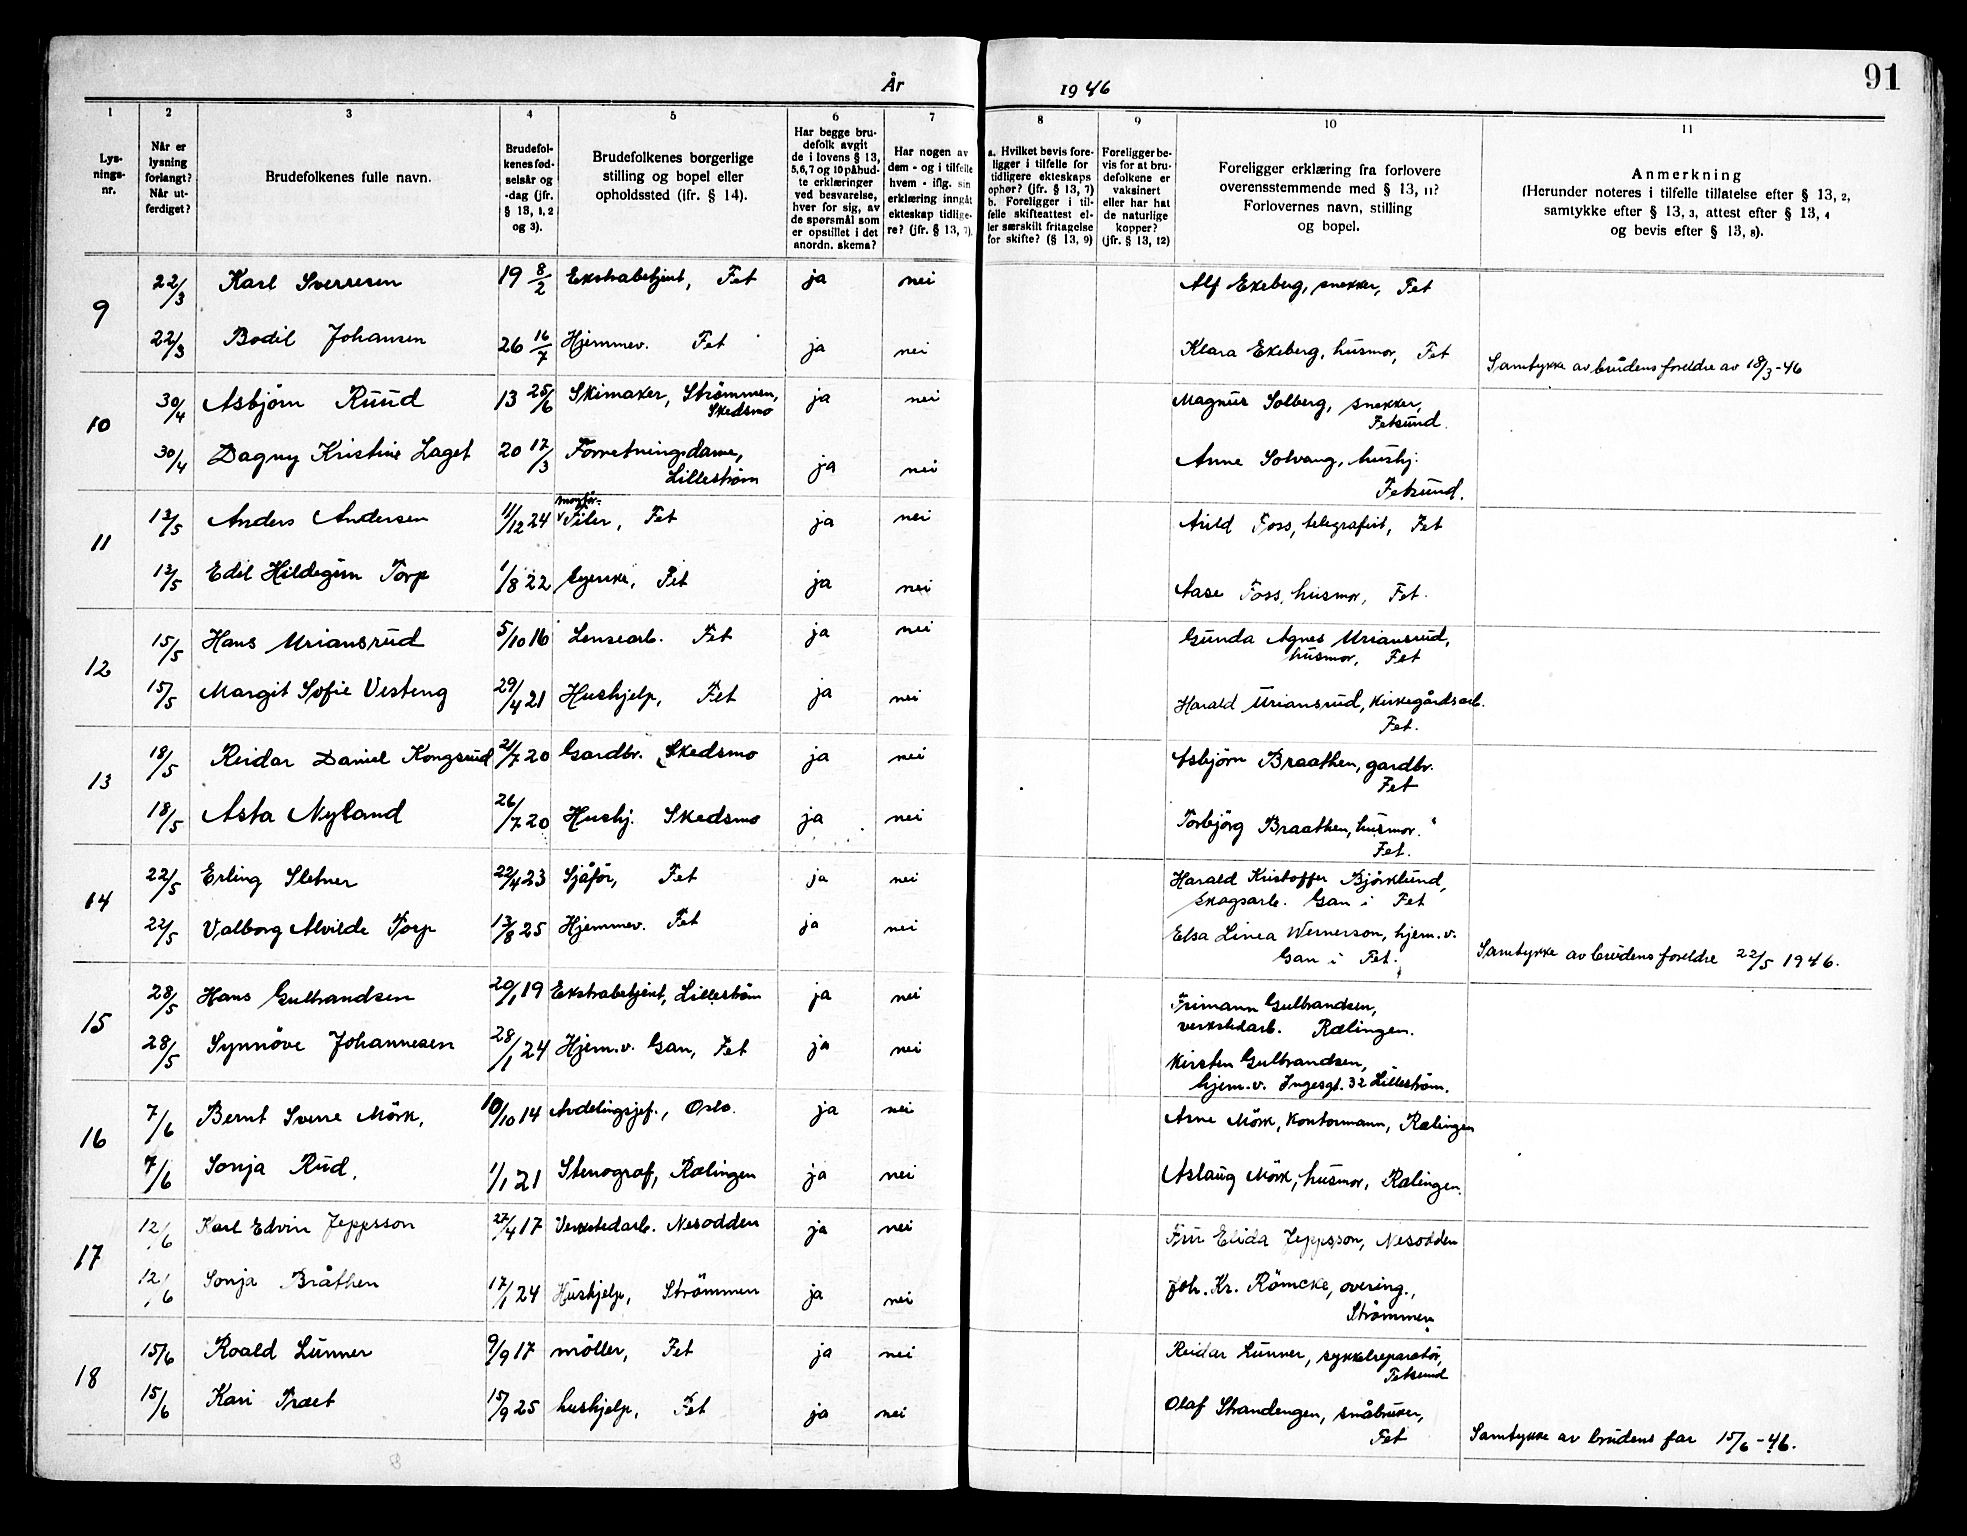 91
År 1946
1 2 3 4 5 6 7 8 9 10 11
Lys-
nings-
nr.
Når er
lysning
forlangt?
Når ut-
ferdiget?
Brudefolkenes fulle navn.
Brudefol-
kenes fød-
selsår og
-dag (jfr.
§ 13, 1, 2
og 3).
Brudefolkenes borgerlige
stilling og bopel eller
opholdssted (ifr. § 14).
Har begge bru-
defolk avgit
de i lovens § 13,
5,6,7 og 10 påbud-
te erklæringer
ved besvarelse,
hver for sig, av
de spørsmål som
er opstillet i det
anordn. skema?
Har nogen av
dem - og i tilfelle
hvem - iflg. sin
erklæring inngåt
ekteskap tidlige-
re? (jfr. § 13, 7).
a. Hvilket bevis fore-
ligger i tilfelle for
tidligere ekteskaps
ophør? (jfr. § 13, 7)
b. Foreligger i til-
felle skifteattest el-
ler særskilt fritagelse
for skifte? (§ 13, 9)
Foreligger be-
vis for at bru-
defolkene er
vaksinert
eller har hat
de naturlige
kopper?
(jfr. § 13, 12)
Foreligger erklæring fra forlovere
overensstemmende med § 13, 11?
Forlovernes navn, stilling
og bopel.
Anmerkning
(Herunder noteres i tilfelle tillatelse efter § 13, 2,
samtykke efter § 13, 3, attest efter § 13, 4
og bevis efter § 13, 8).
9 22/3 Karl Sverresen 19 8/2 Ekstrabetjent, Fet ja nei Alf Ekeberg, snekker, Fet
22/3 Bodil Johansen 26 16/7 Hjemmev. Fet ja nei Klara Ekeberg, husmor, Fet Samtykke av brudens foreldre av 18/3-46
10 30/4 Asbjørn Ruud 13 25/6 Skimaker, Strømmen, Skedsmo ja nei Magnus Solberg, snekker, Fetsund.
30/4 Dagny Kristine Laget 20 17/3 Forretningsdame, Lillestrøm ja nei Anne Solvang, hushj. Fetsund.
11 13/5 Anders Andersen 11/12 24 Filer, Fet ja nei Arild Foss, telegrafist, Fet
13/5 Edel Hildegun Torp 1/8 22 syerske, Fet ja nei Aase Foss, husmor, Fet.
12 15/5 Hans Uriansrud 5/10 16 Lensearb. Fet ja nei Gunda Agnes Uriansrud, husmor, Fet
15/5 Margit Sofie Vesteng 29/4 21 Hushjelp, Fet ja nei Harald Uriansrud, kirkegårdsarb. Fet.
13 18/5 Reidar Daniel Kongsrud 21/7 20 Gardbr. Skedsmo ja nei Asbjørn Braathen, gardbr. Fet
18/5 Asta Nyland 26/7 20 Hushj. Skedsmo ja nei Torbjörg Braathen, husmor. Fet.
14 22/5 Erling Sletner 22/4 23 Sjåför, Fet ja nei Harald Kristoffer Björklund, skogsarb. Gan i Fet
22/5 Valborg Alvilde Torp 13/8 25 Hjemmev. Fet ja nei Elsa Linea Wernerson, hjem.v. Gan i Fet. Samtykke av brudens foreldre 22/5 1946.
15 28/5 Hans Gulbrandsen 20/1 19 Ekstrabetjent, Lillestrøm ja nei Frimann Gulbrandsen, verkstedarb. Rælingen.
28/5 Synnöve Johannesen 28/1 24 Hjem.v. Gan, Fet ja nei Kirsten Gulbrandsen, hjem.v. Ingesgt. 32 Lillestrøm.
16 7/6 Bernt Sverre Mörk, 10/10 14 Avdelingsjef., Oslo. ja nei Arne Mörk, Kontormann, Rælingen
7/6 Sonja Rud, 1/1 21 Stenograf, Rælingen ja nei Aslaug Mörk, husmor, Rælingen.
17 12/6 Karl Edvin Jeppsson 27/4 17 Verkstedarb. Nesodden ja nei Fru Elida Jeppsson, Nesodden
12/6 Sonja Bråthen 17/1 24 Hushjelp, Strömmen ja nei Joh. Kr. Römcke, overing., Strömmen
18 15/6 Roald Lunner 9/9 17 möller, Fet ja nei Reidar Lunner, sykkelreparatör, Fetsund
15/6 Kari Præt 15/9 25 hushjelp, Fet ja nei Olaf Strandengen, småbruker, Fet Samtykke av brudens far 15/6-46.